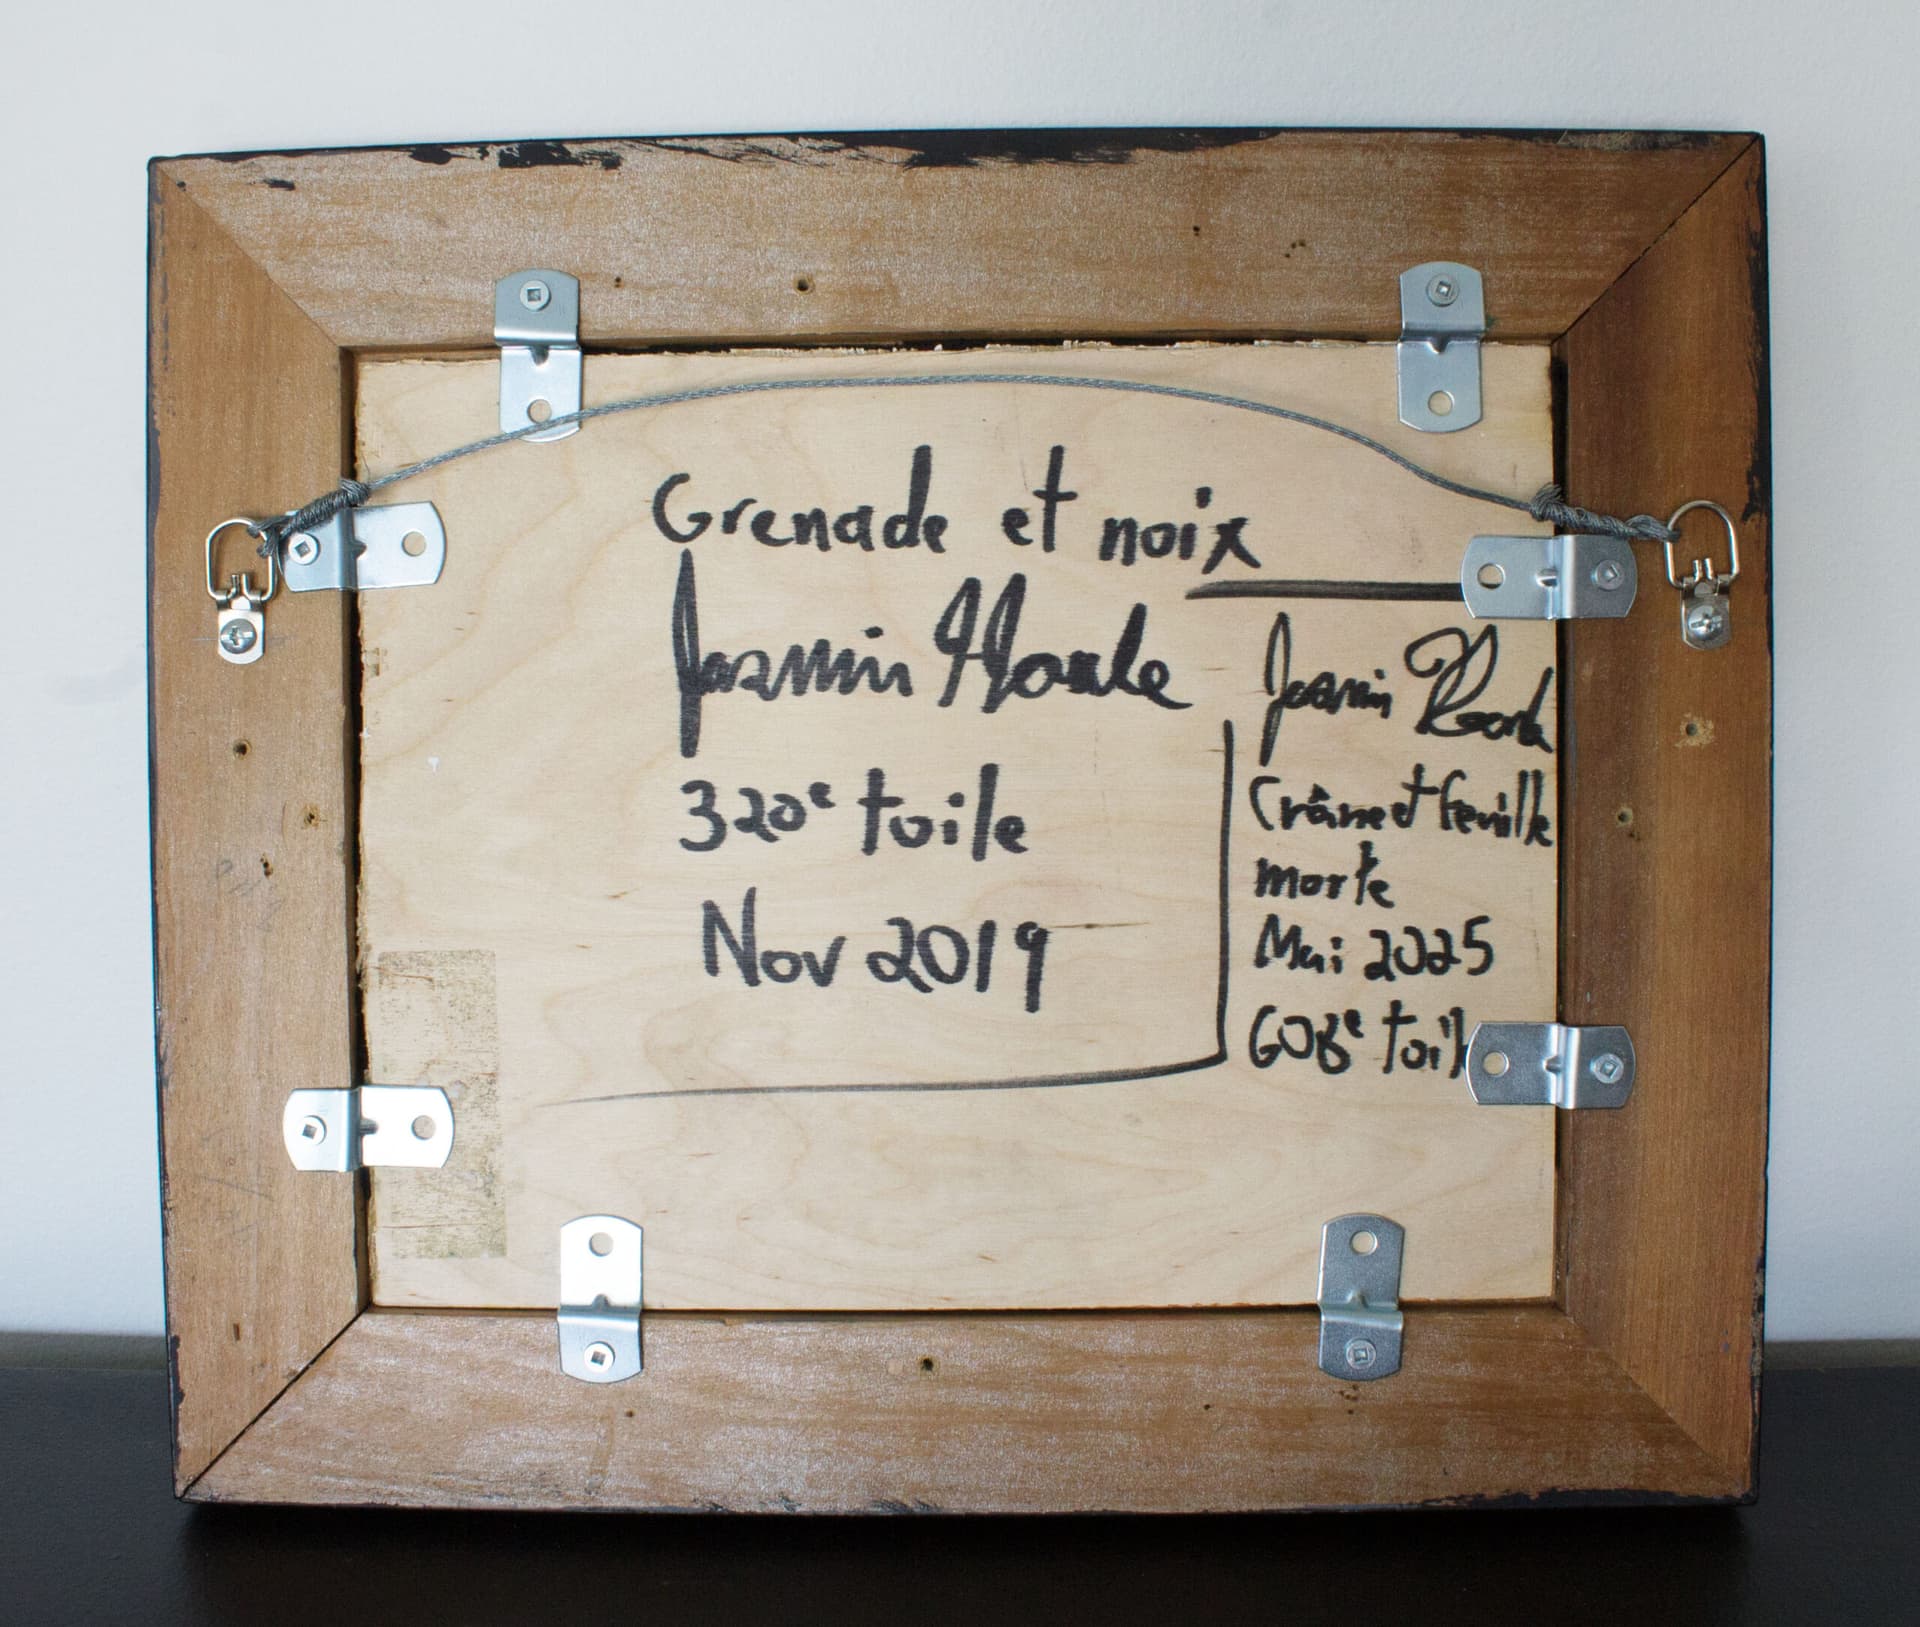 Grenade et noix
Jasmin Houle
320e toile
Nov 2019
Jasmin Houle
Crâne et feuille
morte
Mai 2025
608e toil